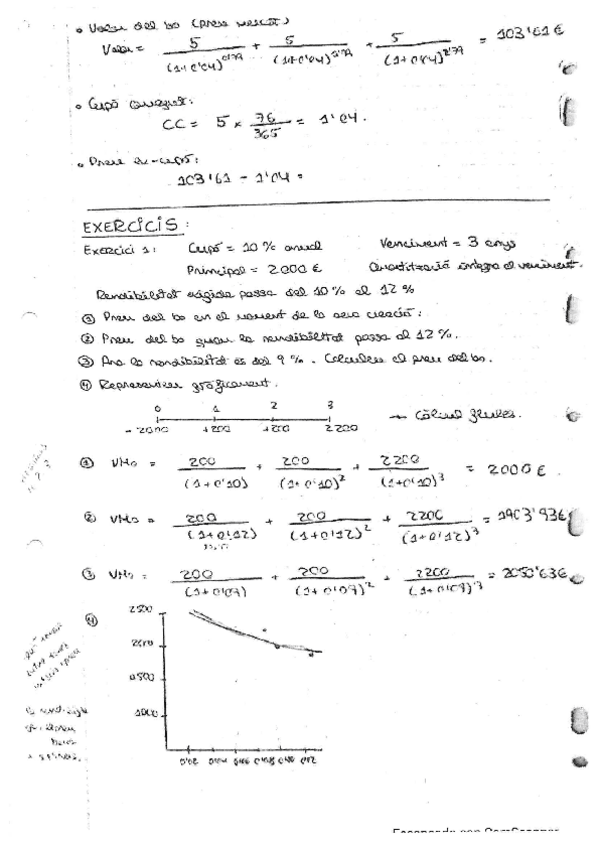 • Valor del bo (preu mercat)
Valor = 5 / (1+0'04)^0'79 + 5 / (1+0'04)^1'79 + 5 / (1+0'04)^2'79 = 103'61€
• Cupó corregut:
CC = 5 × 76/365 = 1'04.
• Preu ex-cupó:
103'61 - 1'04 =
EXERCICIS:
Exercici 1: Cupó = 10% anual Venciment = 3 anys
Principal = 2000 € Amortització íntegra al venciment.
Rendibilitat exigida passa del 10% al 12%
① Preu del bo en el moment de la seva creació:
② Preu del bo quan la rendibilitat passa al 12%.
③ Ara la rendibilitat és del 9%. Calculeu el preu del bo.
④ Representeu gràficament.
0 1 2 3
-2000 +200 +200 2200 → Càlcul fluxes.
① VM0 = 200 / (1+0'10) + 200 / (1+0'10)^2 + 2200 / (1+0'10)^3 = 2000€.
② VM0 = 200 / (1+0'12) + 200 / (1+0'12)^2 + 2200 / (1+0'12)^3 = 1903'93€
③ VM0 = 200 / (1+0'09) + 200 / (1+0'09)^2 + 2200 / (1+0'09)^3 = 2050'63€
④
2500
2000
1500
1000
0'02 0'04 0'06 0'08 0'10 0'12